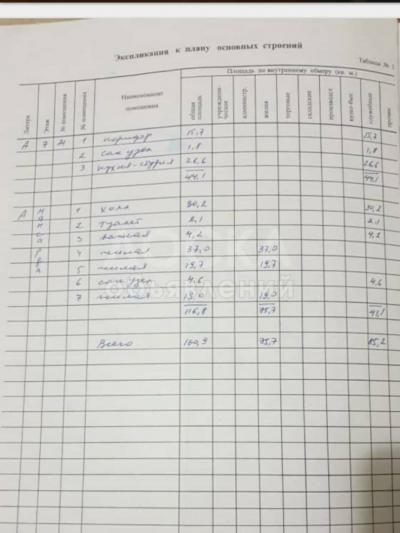 Экспликация к плану основных строений
Таблица № 1
Литера
Этаж
№ помещения
№ помещения
Наименование помещения
Площадь по внутреннему обмеру (кв. м.)
общая площадь
учрежденческая
администр.
жилая
торговые
складские
производст
культ-быт.
служебные
прочие
А 7 21 1 коридор 15,7 15,7
2 сан узел 1,8 1,8
3 кухня-студия 26,6 26,6
44,1 44,1
А мансарда 1 холл 30,2 30,2
2 туалет 2,1 2,1
3 ванная 4,2 4,2
4 жилая 37,0 37,0
5 жилая 19,7 19,7
6 сан узел 4,6 4,6
7 жилая 19,0 19,0
116,8 75,7 41,1
Всего 160,9 75,7 85,2
ОБЪЯВЛЕНИЙ